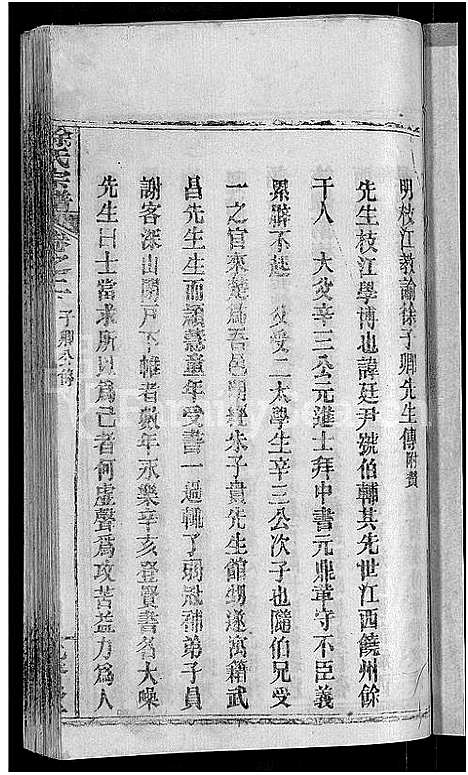 明枝江教諭徐子卿先生傳附贊
先生枝江學博也諱廷尹號伯輔其先世江西饒州餘
干人 大父辛三公元進士拜中書元鼎革守不臣義
累辟不起 父受二太學生辛三公次子也隨伯兄受
一之官來楚為吾邑明經朱子貴先生館甥遂寓籍武
昌先生生而穎慧童年受書一過輒了弱冠補弟子員
謝客深山閉戶下帷者數年永樂辛亥登賢書名大噪
先生曰士當求所以為己者何虛聲為攻苦益力為人
徐氏宗譜
卷之二
子卿公傳